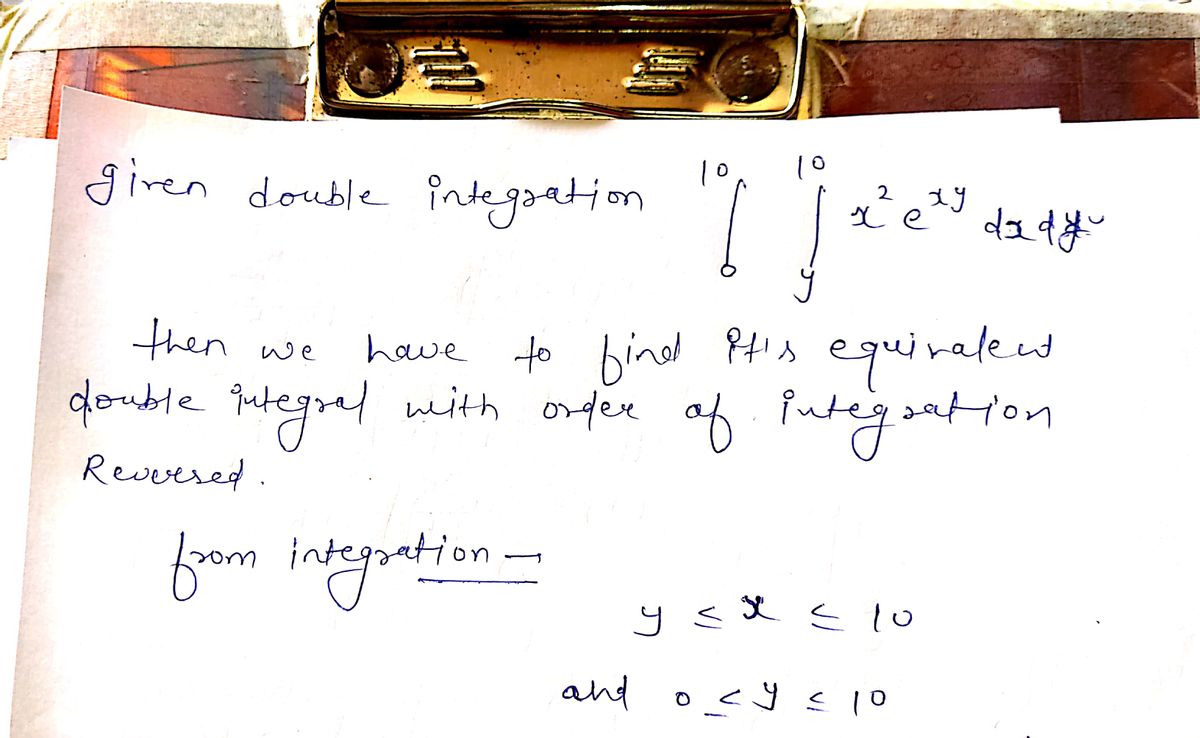 given double integration ∫₀¹⁰ ∫ᵧ¹⁰ x² e^{xy} dx dy
then we have to find it's equivalent
double integral with order of integration
Reversed.
from integration –
y ≤ x ≤ 10
and 0 ≤ y ≤ 10